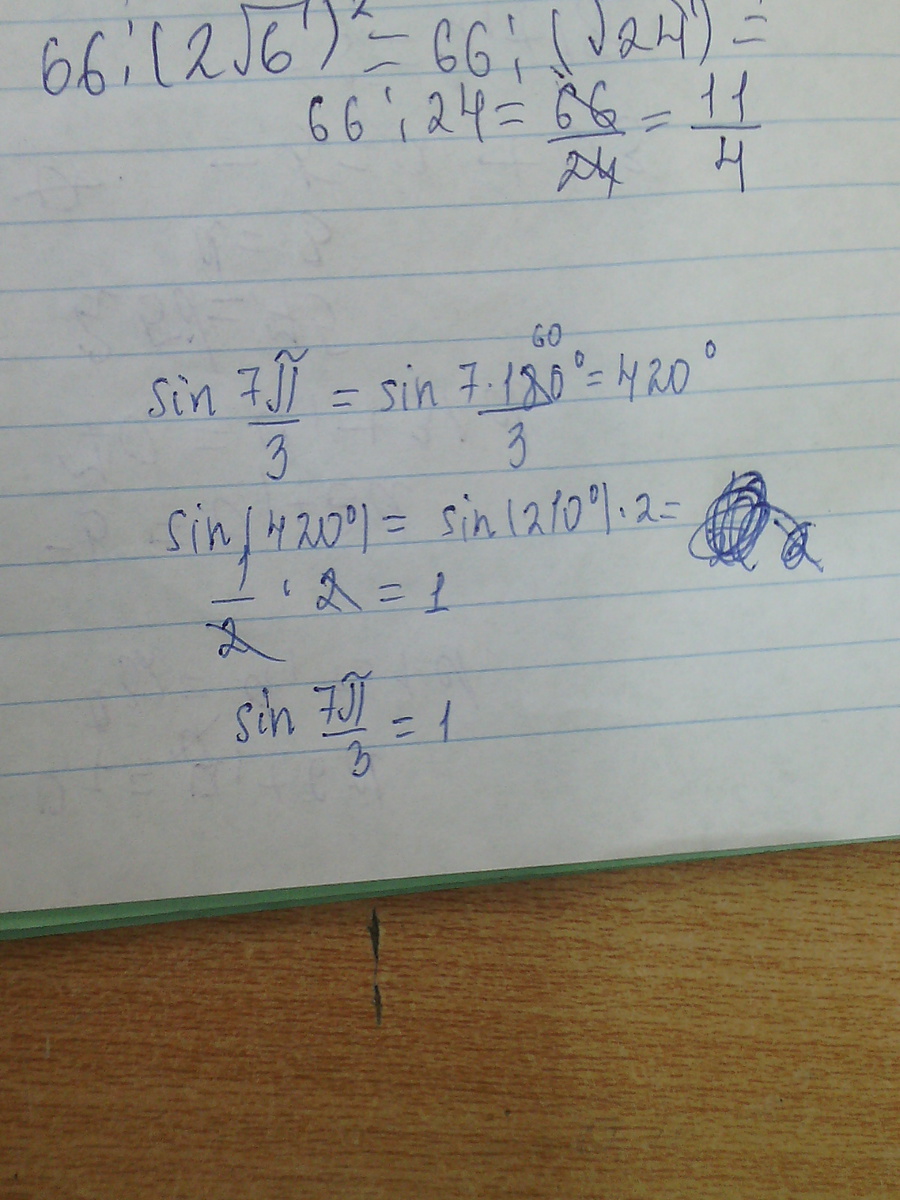 66:(2√6)² = 66:(√24) =
66:24 = 66/24 = 11/4
60
sin 7π/3 = sin 7·180°/3 = 420°
sin(420°) = sin(210°)·2 =
1/2 · 2 = 1
sin 7π/3 = 1